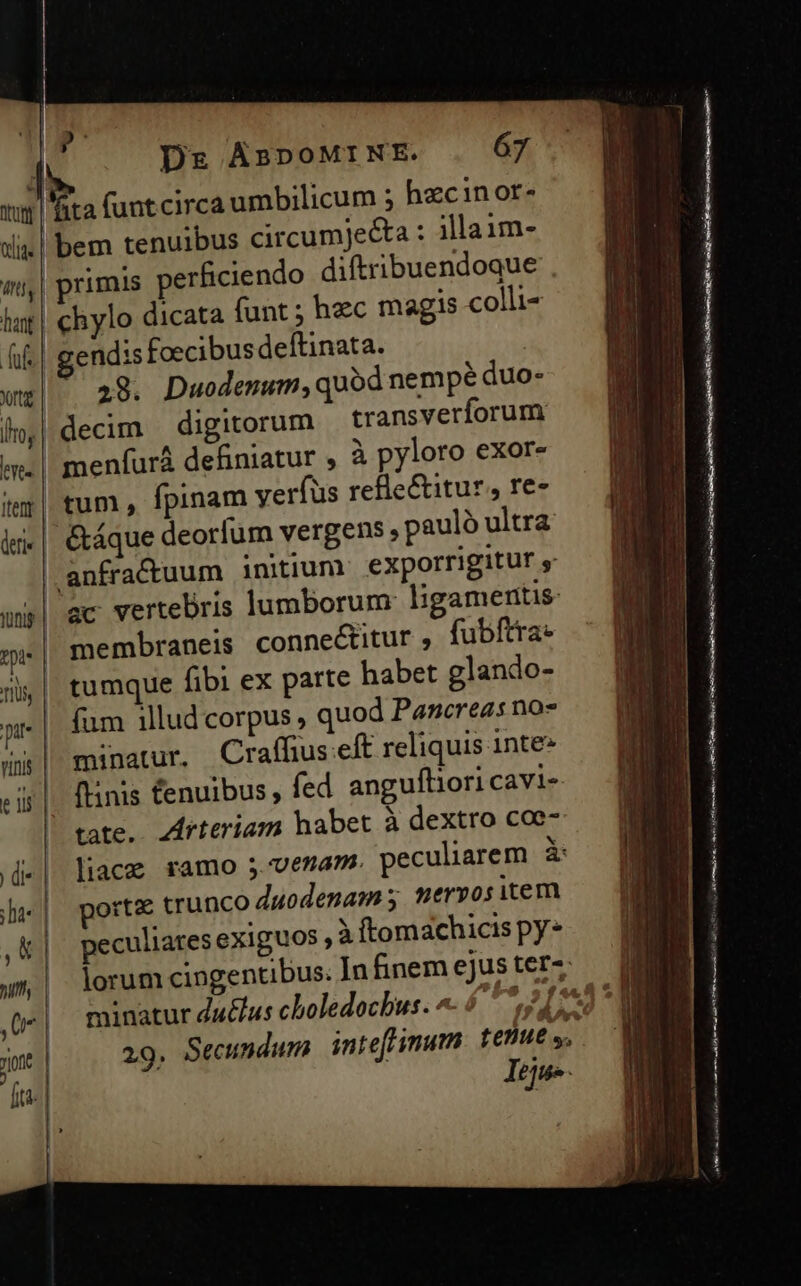 DE ABDOMINE. 67
ſita ſunt circa umbilicum ; hæc in or-
bem tenuibus circumjecta : illa im-
primis perficiendo diſtribuendoque
chylo dicata ſunt ; hæc magis colli-
gendis fœcibus deſtinata.
28. Duodenum, quòd nempè duo-
decim digitorum transverſorum
menſurâ definiatur , à pyloro exor-
tum , ſpinam verſùs reflectitur , re-
ctáque deorſum vergens , paulò ultra
anfractuum initium exporrigitur ,
ac vertebris lumborum ligamentis
membraneis connectitur , ſubſtra-
tumque ſibi ex parte habet glando-
ſum illud corpus , quod Pancreas no-
minatur. Craſſius eſt reliquis inte-
ſtinis tenuibus , ſed anguſtiori cavi-
tate. Arteriam habet à dextro cœ-
liacæ ramo ; venam peculiarem à
portæ trunco duodenam ; nervos item
peculiares exiguos , à ſtomachicis py-
lorum cingentibus. In finem ejus ter-
minatur ductus choledochus.
29. Secundum inteſtinum tenue ,
Ieju-